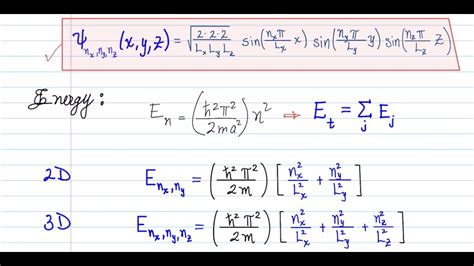 Ψ_{n_x,n_y,n_z}(x,y,z) = √(2·2·2 / L_x L_y L_z) sin(n_xπ/L_x x) sin(n_yπ/L_y y) sin(n_zπ/L_z z)
Energy: E_n = (ħ²π²/2ma²) n² ⇒ E_t = Σ_j E_j
2D E_{n_x,n_y} = (ħ²π²/2m) [n_x²/L_x² + n_y²/L_y²]
3D E_{n_x,n_y,n_z} = (ħ²π²/2m) [n_x²/L_x² + n_y²/L_y² + n_z²/L_z²]